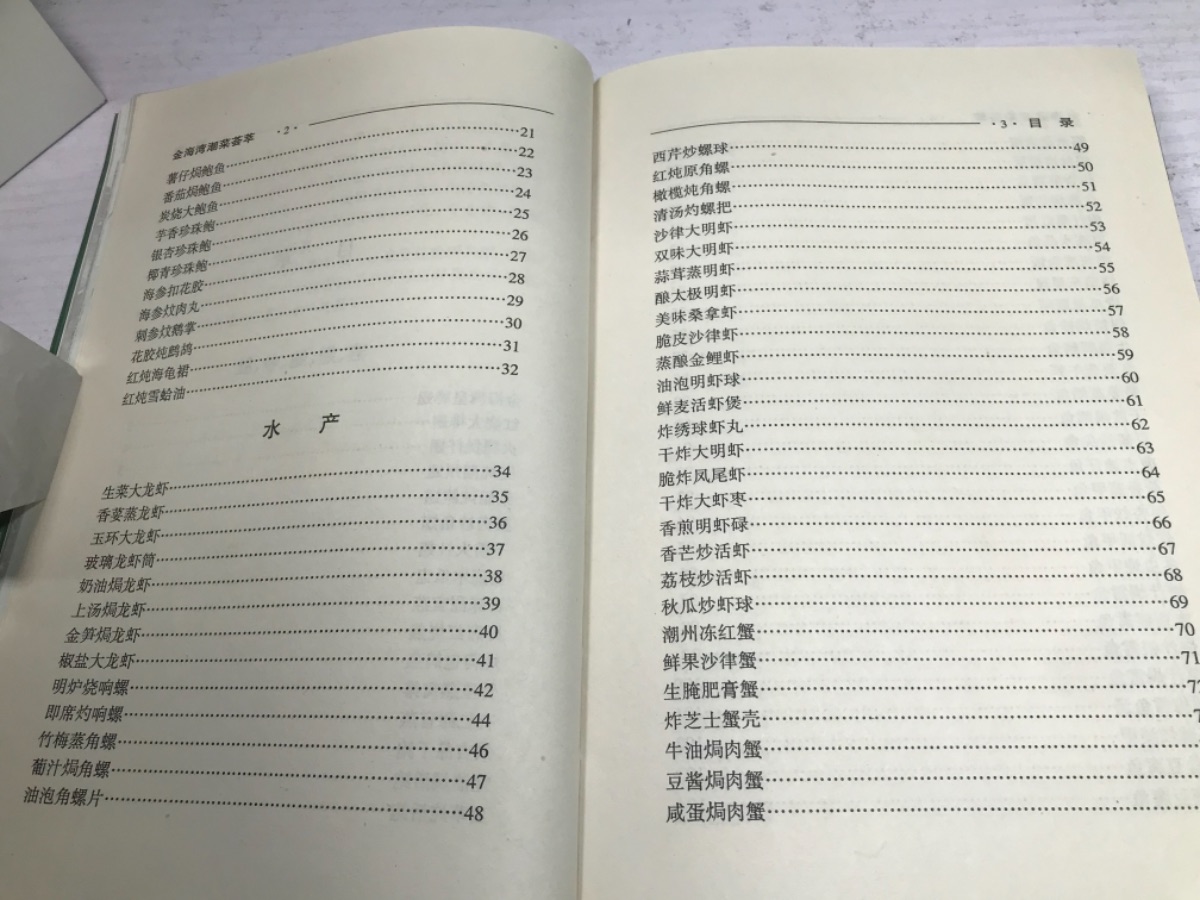 金海湾潮菜荟萃 ·2·
薯仔焗鲍鱼……21
番茄焗鲍鱼……22
炭烧大鲍鱼……23
芋香珍珠鲍……24
银杏珍珠鲍……25
椰青珍珠鲍……26
海参扣花胶……27
海参炆肉丸……28
刺参炆鹅掌……29
花胶炖鹧鸪……30
红炖海龟裙……31
红炖雪蛤油……32
水 产
生菜大龙虾……34
香荽蒸龙虾……35
玉环大龙虾……36
玻璃龙虾筒……37
奶油焗龙虾……38
上汤焗龙虾……39
金笋焗龙虾……40
椒盐大龙虾……41
明炉烧响螺……42
即席灼响螺……44
竹梅蒸角螺……46
葡汁焗角螺……47
油泡角螺片……48
·3· 目 录
西芹炒螺球……49
红炖原角螺……50
橄榄炖角螺……51
清汤灼螺把……52
沙律大明虾……53
双味大明虾……54
蒜茸蒸明虾……55
酿太极明虾……56
美味桑拿虾……57
脆皮沙律虾……58
蒸酿金鲤虾……59
油泡明虾球……60
鲜麦活虾煲……61
炸绣球虾丸……62
干炸大明虾……63
脆炸凤尾虾……64
干炸大虾枣……65
香煎明虾碌……66
香芒炒活虾……67
荔枝炒活虾……68
秋瓜炒虾球……69
潮州冻红蟹……70
鲜果沙律蟹……71
生腌肥膏蟹……
炸芝士蟹壳……
牛油焗肉蟹……
豆酱焗肉蟹……
咸蛋焗肉蟹……